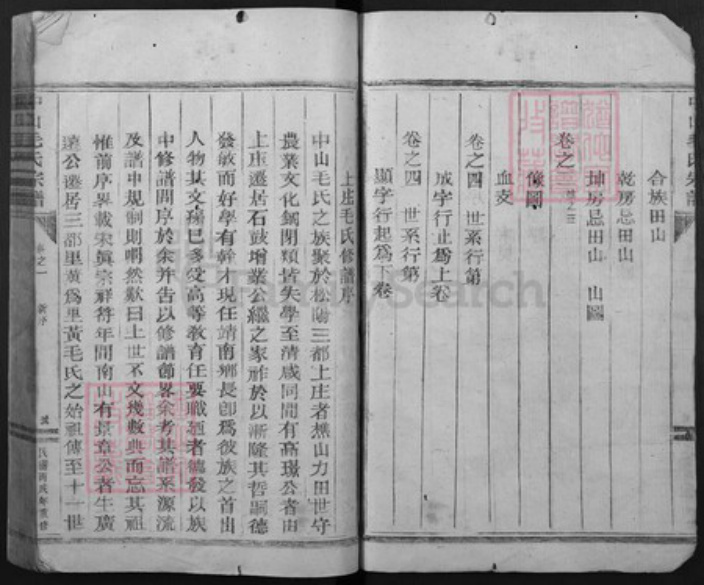 合族田山
乾房忌田山
坤房忌田山 山圖
卷之
像圖
血支
卷之四 世系行第
成字行止爲上卷
卷之四 世系行第
顯字行起爲下卷
上庄毛氏修譜序
中山毛氏之族聚於松陽三都上庄者樵山力田世守
農業文化錮閉類皆失學至清咸同間有高璟公者由
上庄遷居石鼓增業公繼之家祚於以漸隆其哲嗣德
發敏而好學有幹才現任靖南鄉長卽爲彼族之首出
人物其文瑒已多受高等教育任要職廼者德發以族
中修譜問序於余幷告以修譜節畧余考其譜系源流
及譜中規制則喟然歎曰上世不文幾數典而忘其祖
惟前序畧載宋眞宗祥符年間南山有景章公者生廣
遠公遷居三都里黃爲里黃毛氏之始祖傳至十一世
中山毛氏宗譜
卷之一 新序
民國丙戌年重修
中山毛氏宗譜
FamilySearch